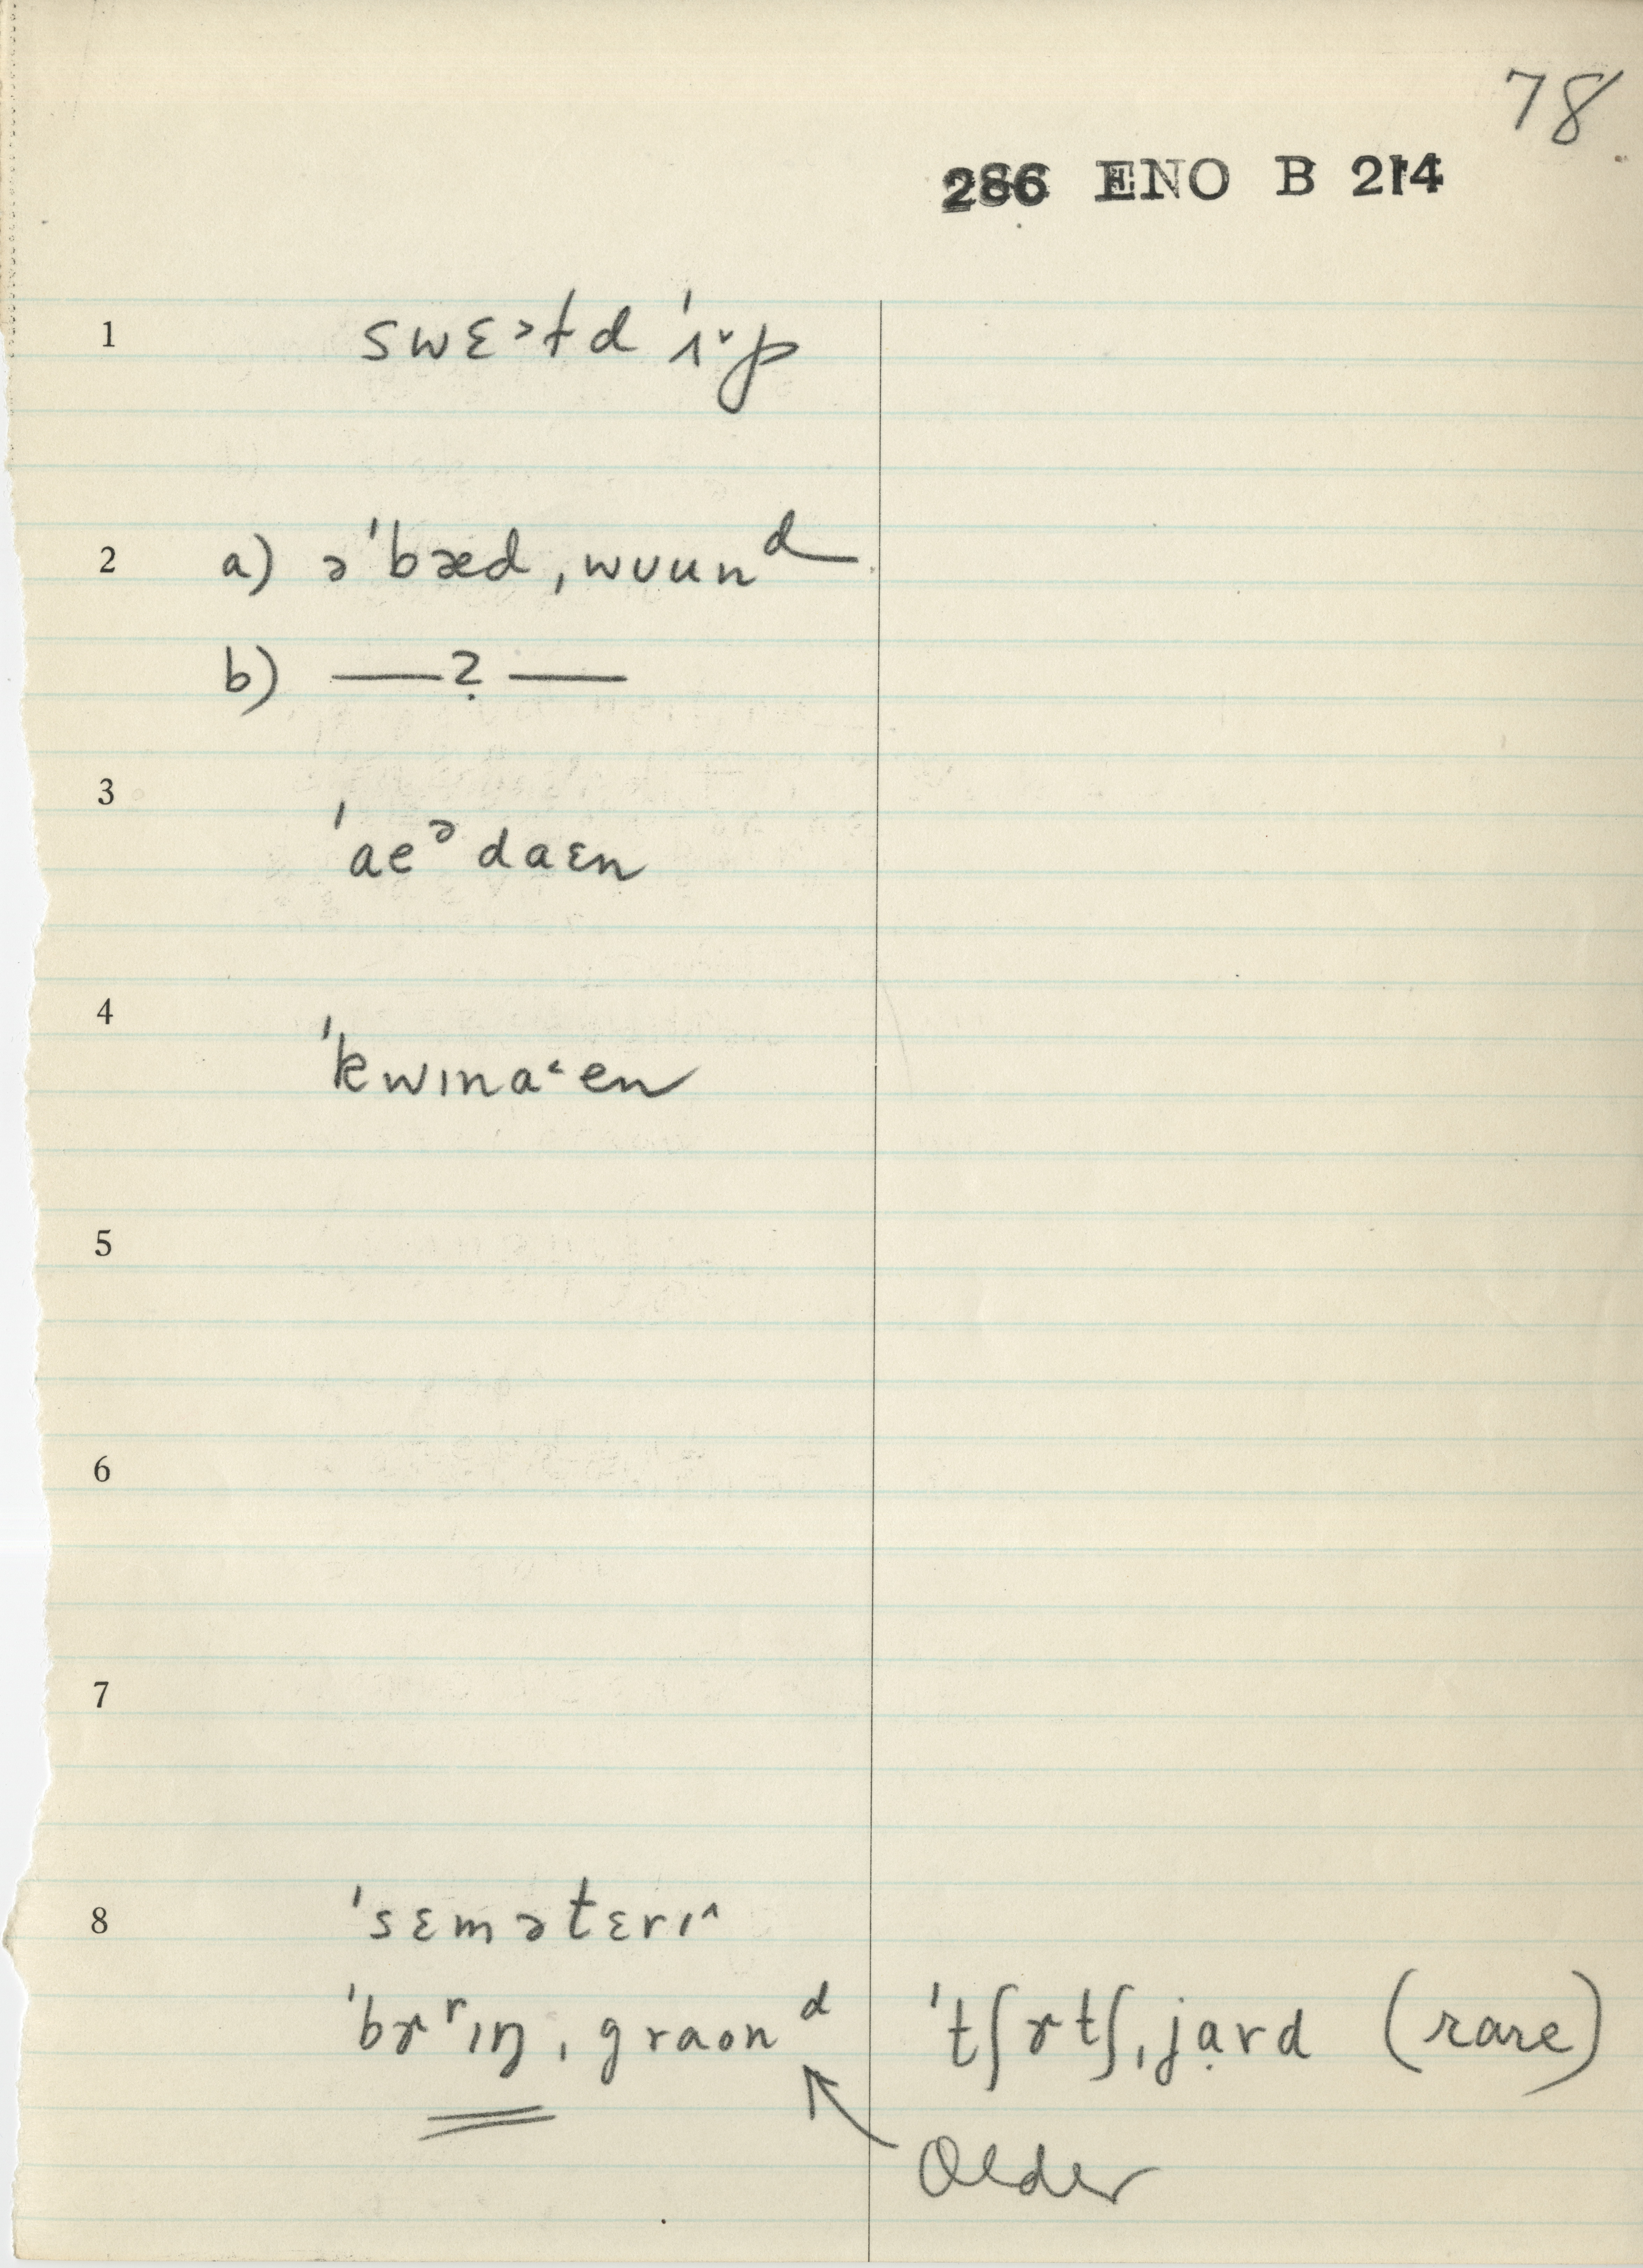 78
286 ENO B 214
1 swɛ˃ɫd 'ɪ˅p
2 a) ə'bæd, wuunᵈ
b) —— ? ——
3 'aeᵊdaɛn
4 'kwɪna˂en
5
6
7
8 'sɛmətɛrɪ^
'bɤʳɪŋ, graonᵈ 'tʃɤtʃ, jạrd (rare)
Older